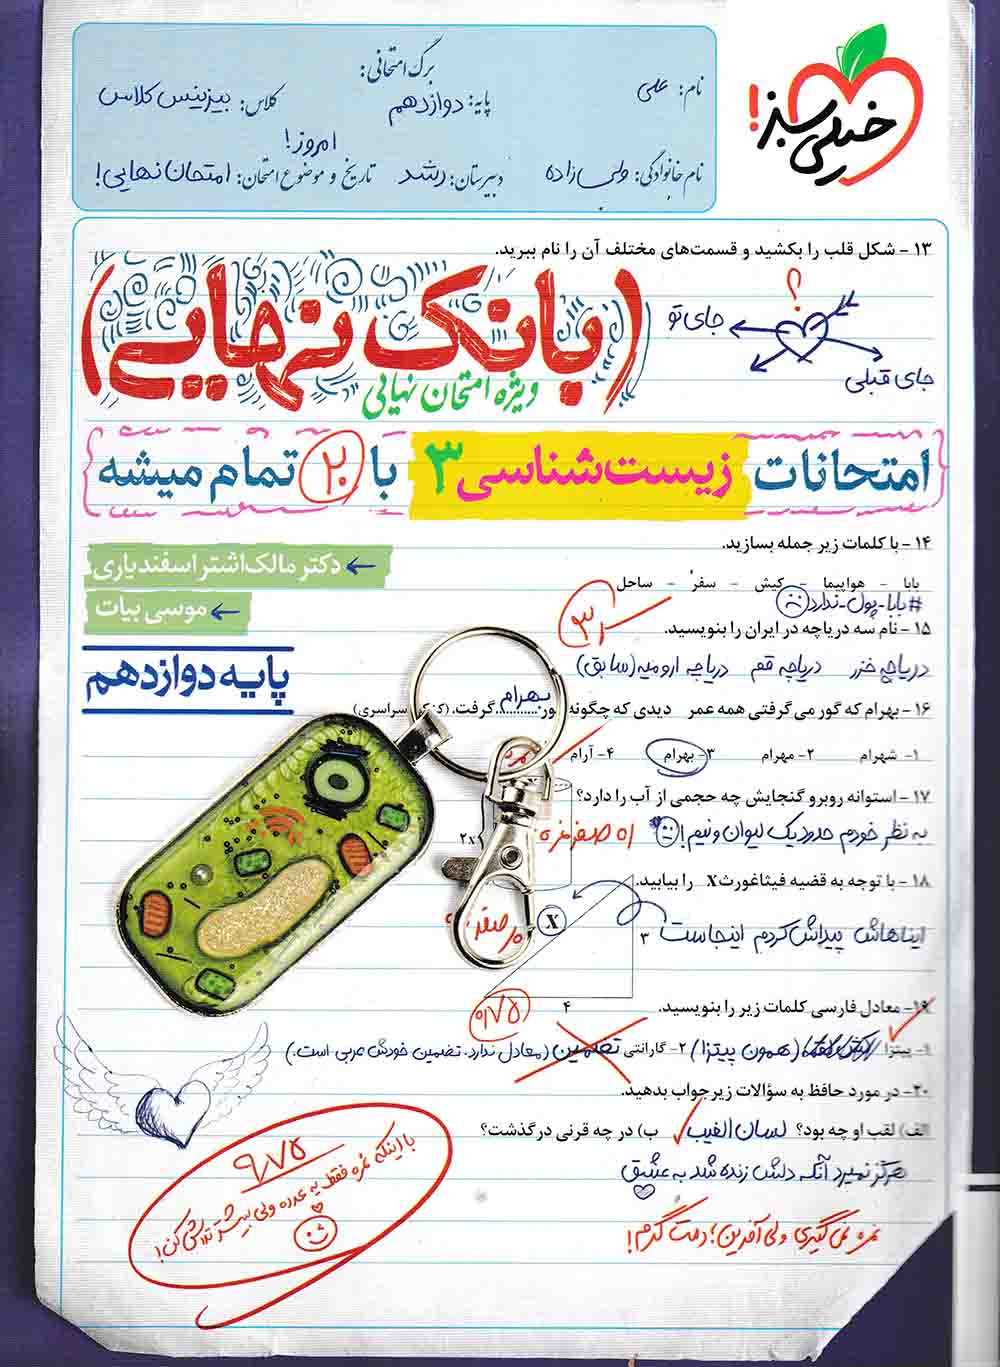 خیلی سبز!
برگ امتحانی:
نام: علی
پایه: دوازدهم
کلاس: بیزینس کلاس
نام خانوادگی: ولی زاده
دبیرستان: رشد
تاریخ و موضوع امتحان: امروز! امتحان نهایی!
۱۳ - شکل قلب را بکشید و قسمت‌های مختلف آن را نام ببرید.
؟
جای تو
جای قبلی
(بانک نهایی)
ویژه امتحان نهایی
امتحانات زیست‌شناسی ۳ با ۲۰ تمام میشه
۱۴ - با کلمات زیر جمله بسازید.
دکتر مالک‌اشتر اسفندیاری
بابا - هواپیما - کیش - سفر - ساحل
#بابا-پول-ندارد
موسی بیات
۱۵ - نام سه دریاچه در ایران را بنویسید.
دریاچه خزر دریاچه قم دریاچه ارومیه (سابق)
پایه دوازدهم
۱۶ - بهرام که گور می‌گرفتی همه عمر دیدی که چگونه گور بهرام گرفت. (سراسری)
۱- شهرام ۲- مهرام ۳- بهرام ۴- آرام
۱۷ - استوانه روبرو گنجایش چه حجمی از آب را دارد؟
به نظر خودم حدود یک لیوان و نیم!
۲x
۱۸ - با توجه به قضیه فیثاغورث X را بیابید.
X
ایناهاش پیداش کردم اینجاست
۳
۴
۱۹ - معادل فارسی کلمات زیر را بنویسید.
۰/۷۵
۱- پیتزا (همون پیتزا) ۲- گارانتی تضمین (معادل ندارد. تضمین خودش عربی است.)
۲۰- در مورد حافظ به سؤالات زیر جواب بدهید.
الف) لقب او چه بود؟ لسان الغیب ب) در چه قرنی درگذشت؟
هرگز نمیرد آنکه دلش زنده شد به عشق
نمره نمی‌گیری ولی آفرین؛ دمت گرم!
۹/۷۵
با اینکه نمره فقط یه عدده ولی بیشتر تلاش کن!